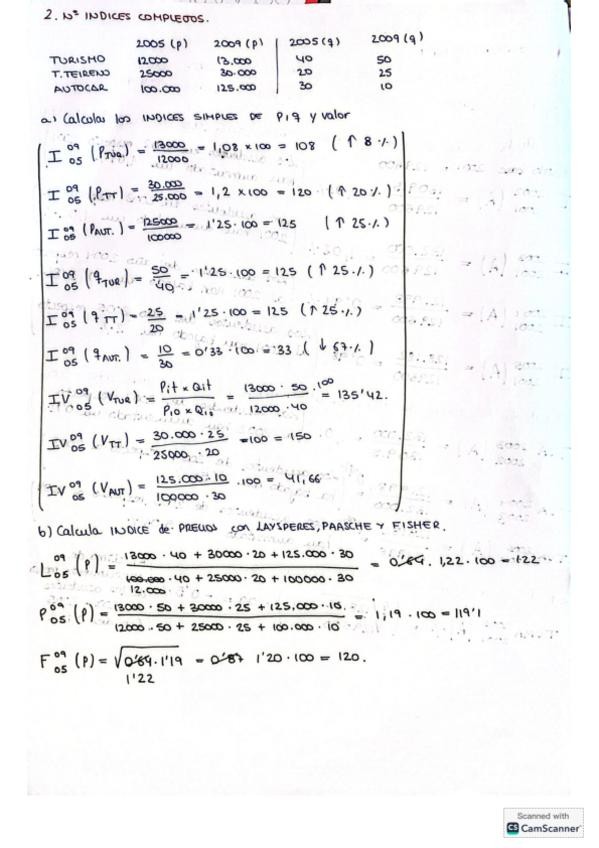 2. Nº INDICES COMPLEJOS.
2005 (p) 2009 (p) 2005 (q) 2009 (q)
TURISMO 12000 13.000 40 50
T. TERRENO 25000 30.000 20 25
AUTOCAR 100.000 125.000 30 10
a) Calcula los INDICES SIMPLES DE P, q y valor
I 09 05 (PTUR) = 13000 / 12000 = 1,08 × 100 = 108 (↑ 8 %)
I 09 05 (PTT) = 30.000 / 25.000 = 1,2 × 100 = 120 (↑ 20 %)
I 09 05 (PAUT.) = 125000 / 100000 = 1'25 · 100 = 125 (↑ 25 %)
I 09 05 (qTUR) = 50 / 40 = 1'25 · 100 = 125 (↑ 25 %)
I 09 05 (qTT) = 25 / 20 = 1'25 · 100 = 125 (↑ 25 %)
I 09 05 (qAUT.) = 10 / 30 = 0'33 · 100 = 33 (↓ 67 %)
IV 09 05 (VTUR) = Pit × Qit / Pio × Qio = 13000 · 50 / 12000 · 40 · 100 = 135'42.
IV 09 05 (VTT) = 30.000 · 25 / 25000 · 20 = 100 = 150
IV 09 05 (VAUT) = 125.000 · 10 / 100000 · 30 · 100 = 41,66
b) Calcula INDICE de PRECIOS con LAYSPERES, PAASCHE Y FISHER.
L 09 05 (P) = 13000 · 40 + 30000 · 20 + 125.000 · 30 / 100.000 12.000 · 40 + 25000 · 20 + 100000 · 30 = 0'89. 1,22 · 100 = 122
P 09 05 (P) = 13000 · 50 + 30000 · 25 + 125,000 · 10. / 12000 · 50 + 25000 · 25 + 100.000 · 10 = 1,19 · 100 = 119'1
F 09 05 (P) = √0'89 · 1'19 = 0'87 1'20 · 100 = 120.
1'22
Scanned with
CS CamScanner